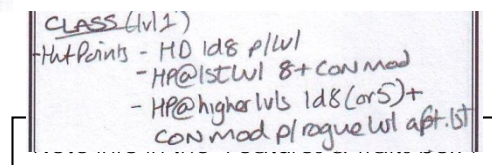 CLASS (lvl 1)
-Hit Points - HD 1d8 p/lvl
-HP@1st lvl 8+ CON mod
- HP@higher lvls 1d8 (or 5) +
CON mod p/rogue lvl aft. 1st